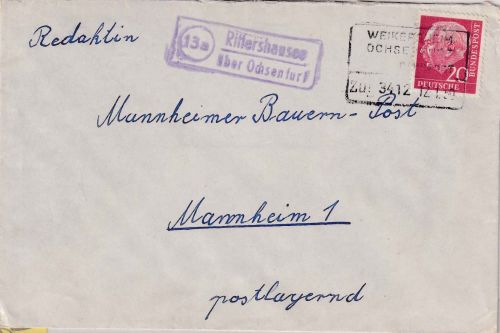 Redaktin
13a
Rittershausen
über Ochsenfurt
WEIKERS
OCHSE
Zug 3412 12.1.
20
DEUTSCHE
BUNDESPOST
Mannheimer Bauern-Post
Mannheim 1
postlagernd